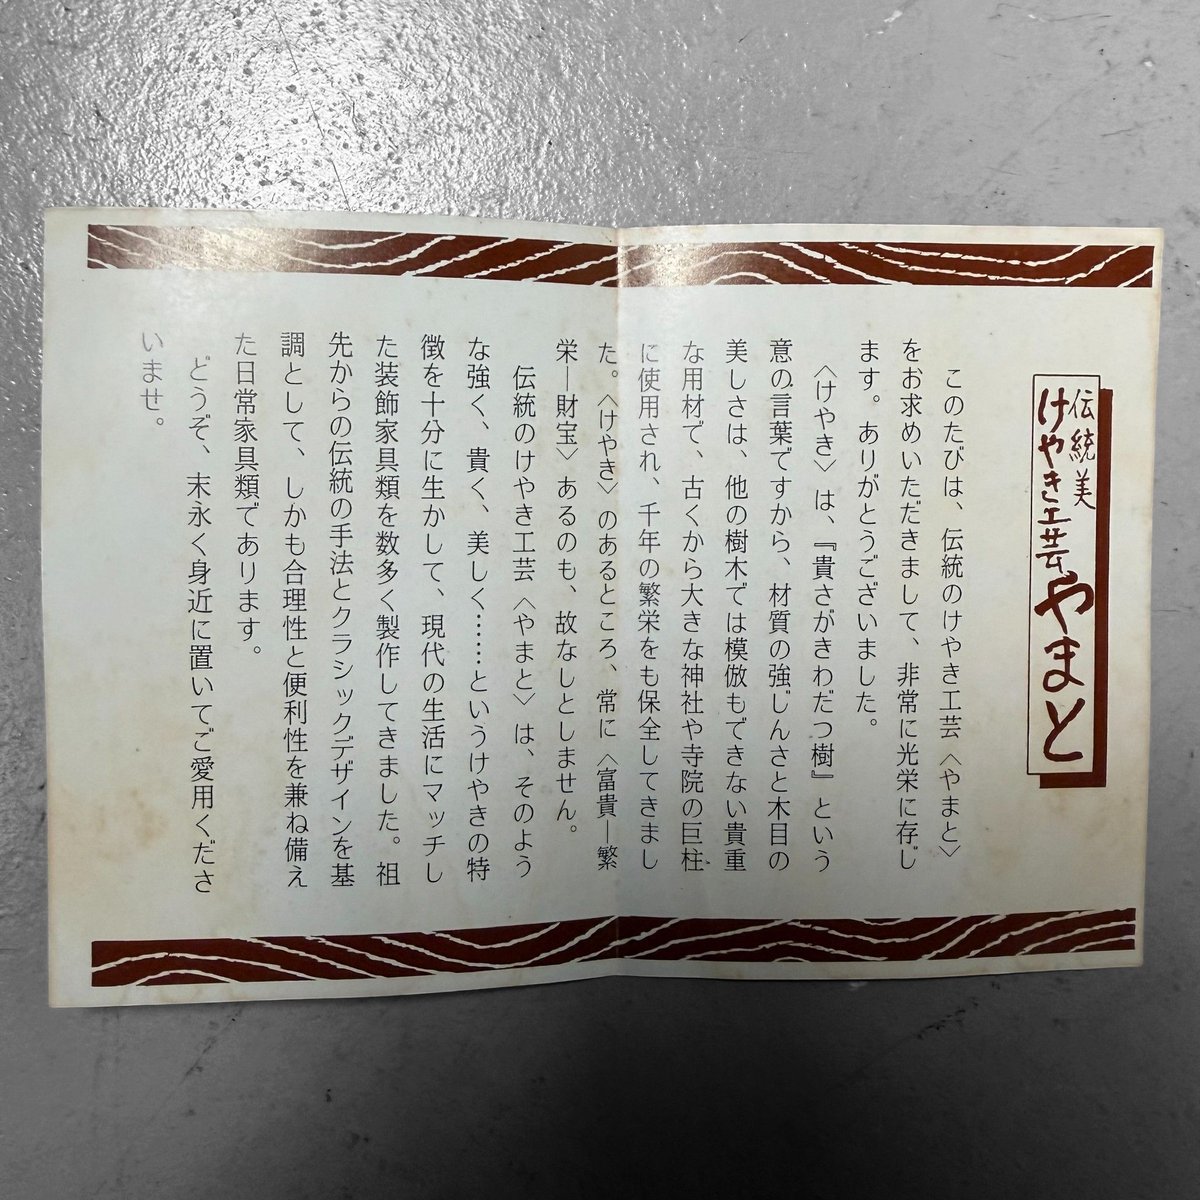 伝統美
けやき工芸 やまと
このたびは、伝統のけやき工芸〈やまと〉
をお求めいただきまして、非常に光栄に存じ
ます。ありがとうございました。
〈けやき〉は、『貴さがきわだつ樹』という
意の言葉ですから、材質の強じんさと木目の
美しさは、他の樹木では模倣もできない貴重
な用材で、古くから大きな神社や寺院の巨柱
に使用され、千年の繁栄をも保全してきまし
た。〈けやき〉のあるところ、常に〈富貴―繁
栄―財宝〉あるのも、故なしとしません。
伝統のけやき工芸〈やまと〉は、そのよう
な強く、貴く、美しく……というけやきの特
徴を十分に生かして、現代の生活にマッチし
た装飾家具類を数多く製作してきました。祖
先からの伝統の手法とクラシックデザインを基
調として、しかも合理性と便利性を兼ね備え
た日常家具類であります。
どうぞ、末永く身近に置いてご愛用くださ
いませ。